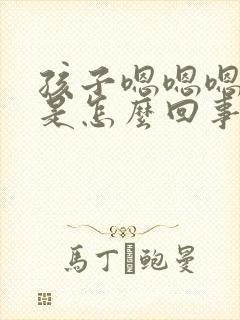 孩子嗯嗯嗯
是怎麼回事
馬丁鲍曼